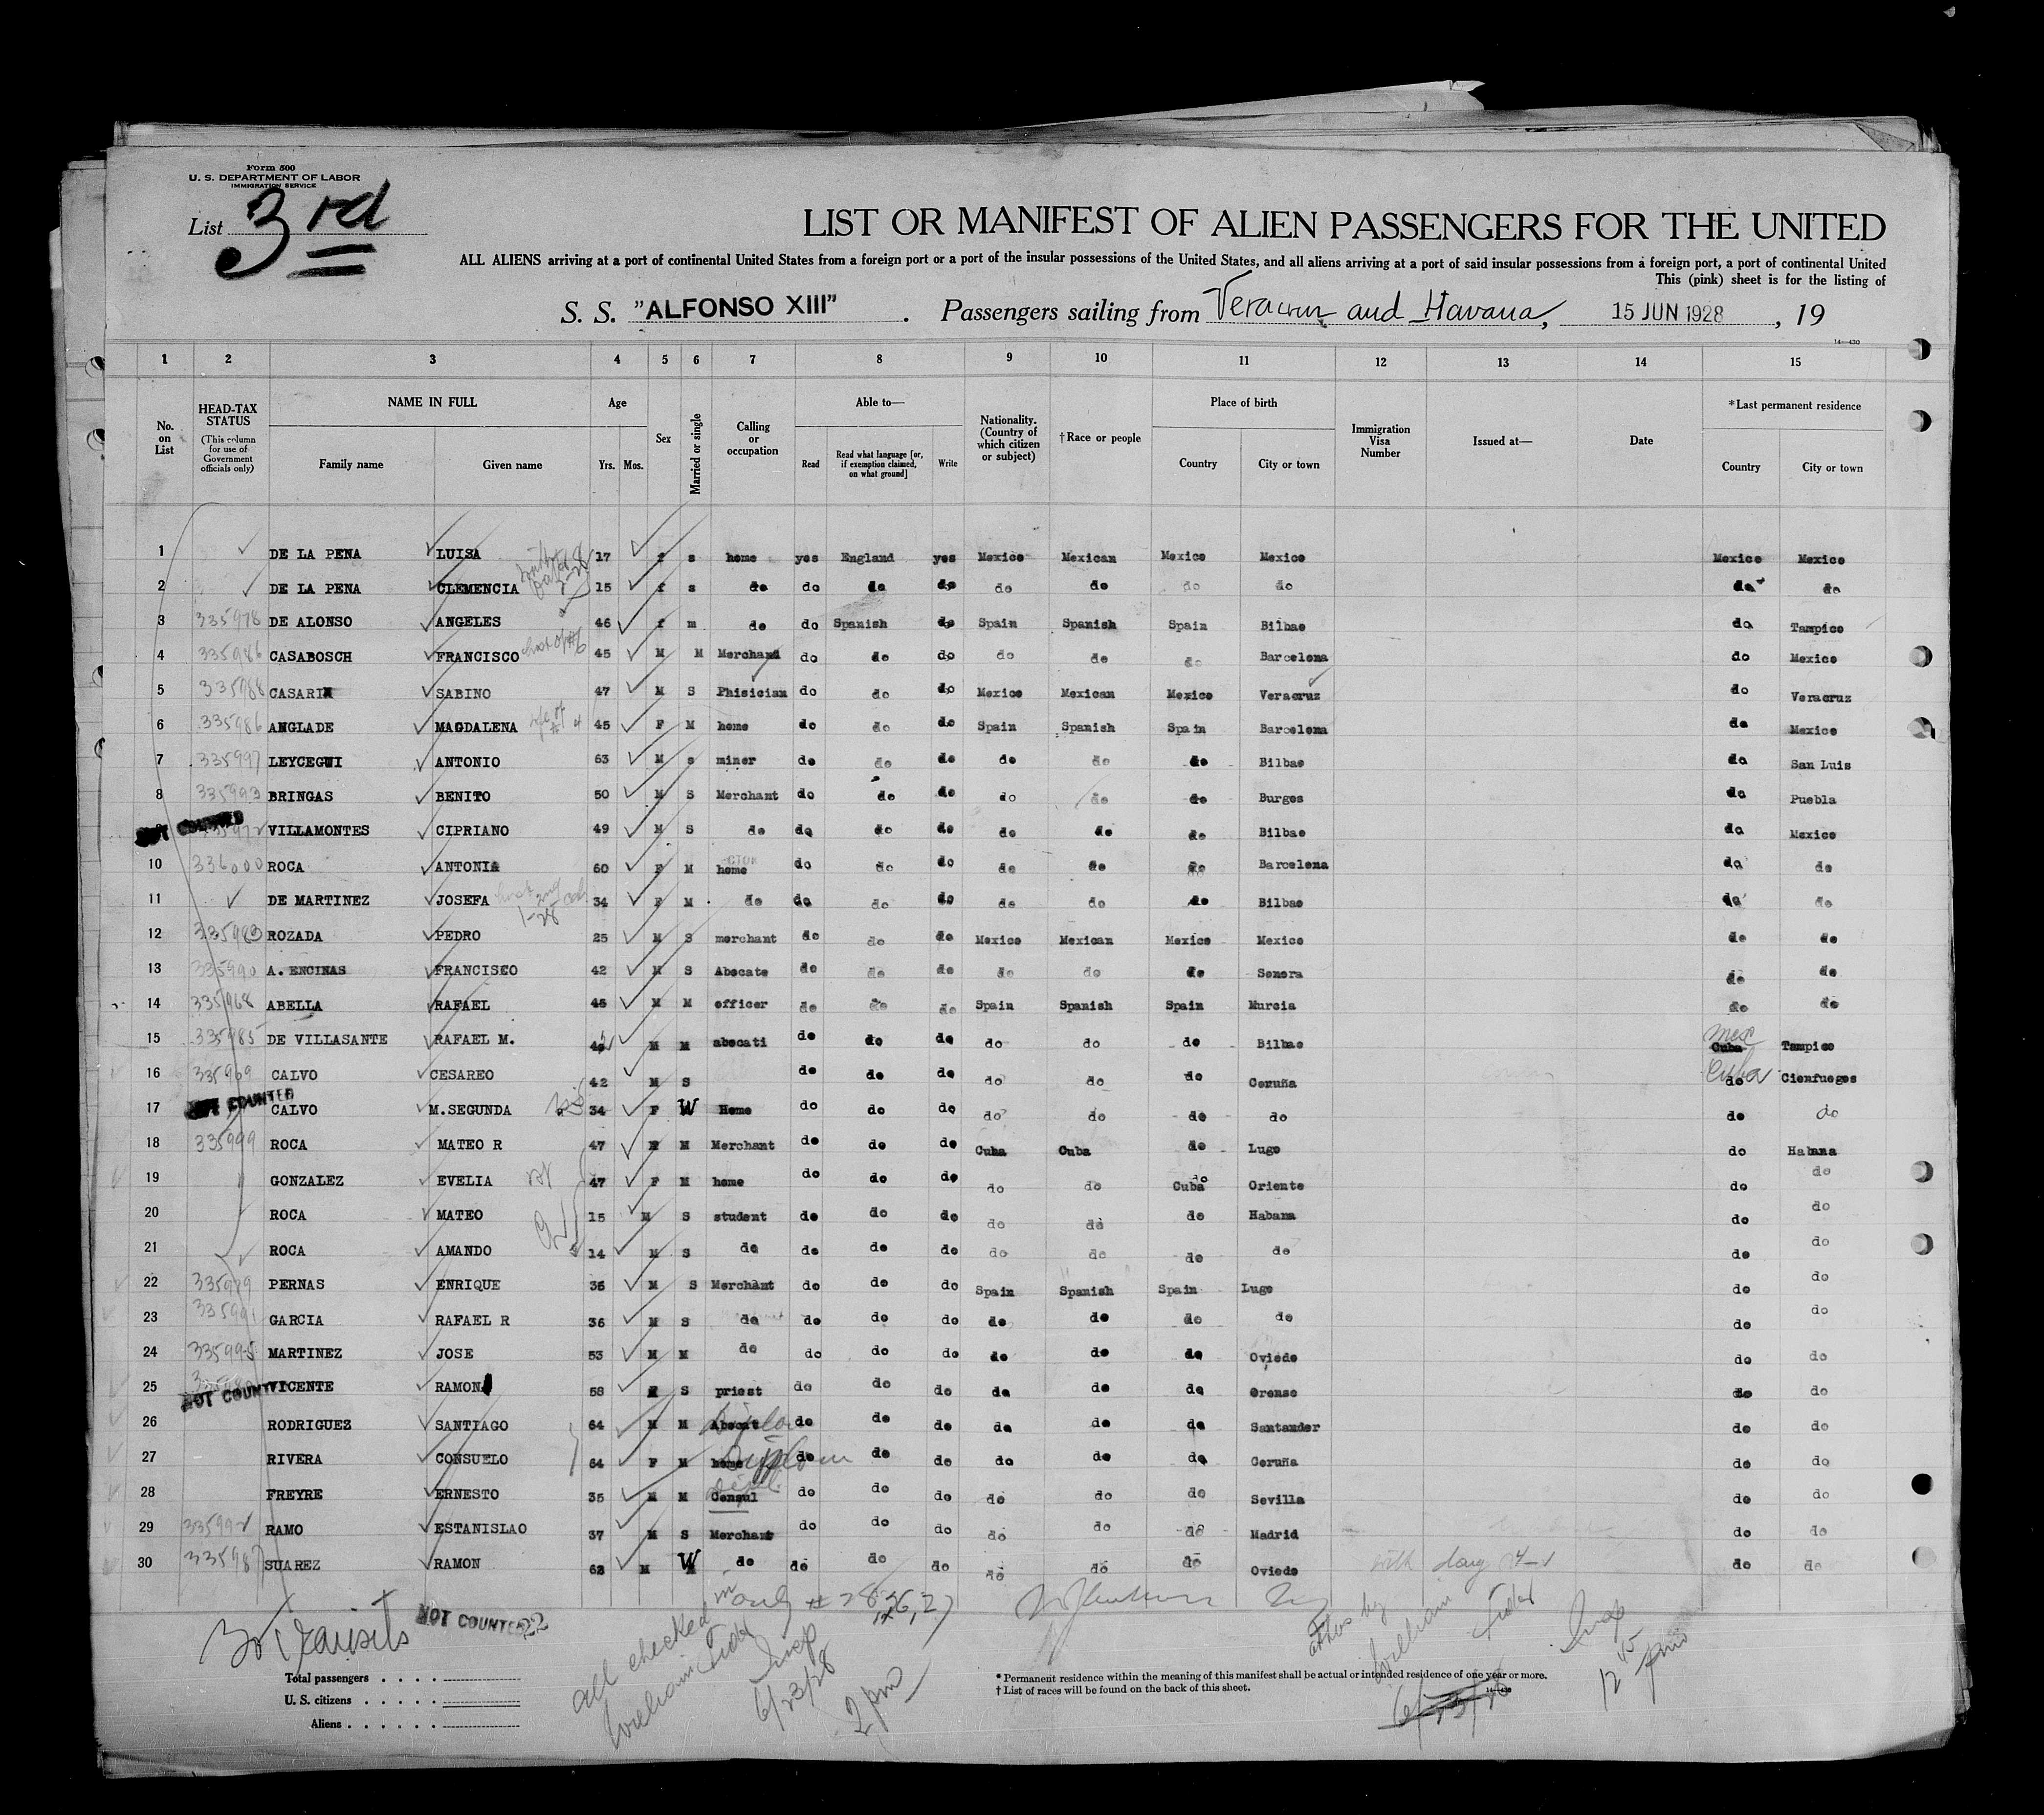 Form 500
U. S. DEPARTMENT OF LABOR
IMMIGRATION SERVICE
List 3rd
LIST OR MANIFEST OF ALIEN PASSENGERS FOR THE UNITED
ALL ALIENS arriving at a port of continental United States from a foreign port or a port of the insular possessions of the United States, and all aliens arriving at a port of said insular possessions from a foreign port, a port of continental United
This (pink) sheet is for the listing of
S. S. "ALFONSO XIII". Passengers sailing from Veracruz and Havana, 15 JUN 1928, 19
14—430
1 2 3 4 5 6 7 8 9 10 11 12 13 14 15
No. on List HEAD-TAX STATUS (This column for use of Government officials only) NAME IN FULL Family name Given name Age Yrs. Mos. Sex Married or single Calling or occupation Able to— Read Read what language [or, if exemption claimed, on what ground] Write Nationality. (Country of which citizen or subject) †Race or people Place of birth Country City or town Immigration Visa Number Issued at— Date *Last permanent residence Country City or town
1 DE LA PENA LUISA 17 f s home yes England yes Mexico Mexican Mexico Mexico Mexico Mexico
2 DE LA PENA CLEMENCIA 15 f s do do do do do do do do do do
3 335978 DE ALONSO ANGELES 46 f m do do Spanish do Spain Spanish Spain Bilbao do Tampico
4 335986 CASABOSCH FRANCISCO 45 M M Merchand do do do do do do Barcelona do Mexico
5 335988 CASARIN SABINO 47 M S Phisician do do do Mexico Mexican Mexico Veracruz do Veracruz
6 335986 ANGLADE MAGDALENA wife of #4 45 F M home do do do Spain Spanish Spain Barcelona do Mexico
7 335997 LEYCEGUI ANTONIO 63 M s miner do do do do do do Bilbao do San Luis
8 335993 BRINGAS BENITO 50 M S Merchant do do do do do do Burgos do Puebla
NOT COUNTED VILLAMONTES CIPRIANO 49 M S do do do do do do do Bilbao do Mexico
10 336000 ROCA ANTONIA 60 F M home do do do do do do Barcelona do do
11 DE MARTINEZ JOSEFA 34 F M do do do do do do do Bilbao do do
12 335983 ROZADA PEDRO 25 M S merchant do do do Mexico Mexican Mexico Mexico do do
13 335990 A. ENCINAS FRANCISCO 42 M S Abocate do do do do do do Sonora do do
14 335968 ABELLA RAFAEL 45 M M officer do do do Spain Spanish Spain Murcia do do
15 335985 DE VILLASANTE RAFAEL M. M M abocati do do do do do do Bilbao Mex Cuba Tampico
16 335969 CALVO CESAREO 42 M S do do do do do do Coruña Cuba do Cienfuegos
17 NOT COUNTED CALVO M.SEGUNDA 34 F W Home do do do do do do do do do
18 335999 ROCA MATEO R 47 M M Merchant do do do Cuba Cuba do Lugo do Habana
19 GONZALEZ EVELIA 47 F M home do do do do do Cuba do Oriente do do
20 ROCA MATEO 15 M S student do do do do do do Habana do do
21 ROCA AMANDO 14 M S do do do do do do do do do do
22 335989 PERNAS ENRIQUE 36 M S Merchant do do do Spain Spanish Spain Lugo do do
23 335991 GARCIA RAFAEL R 36 M S do do do do do do do do do do
24 335995 MARTINEZ JOSE 53 M M do do do do do do do Oviedo do do
25 NOT COUNTED VICENTE RAMON 58 M S priest do do do do do do Orense do do
26 RODRIGUEZ SANTIAGO 64 M M Abocat do do do do do do Santander do do
27 RIVERA CONSUELO 64 F M home Diplom do do do do do do Coruña do do
28 FREYRE ERNESTO 35 M M Consul do do do do do do Sevilla do do
29 335992 RAMO ESTANISLAO 37 M S Merchant do do do do do do Madrid do do
30 335987 SUAREZ RAMON 62 M W do do do do do do do Oviedo do do
30 transits NOT COUNTED 22
all checked in only # 28, 26, 27
William Insp
6/23/28
2 pm
William Insp
12 45 pm
Total passengers . . . .
U. S. citizens . . . . .
Aliens . . . . . .
* Permanent residence within the meaning of this manifest shall be actual or intended residence of one year or more.
† List of races will be found on the back of this sheet.
14—430